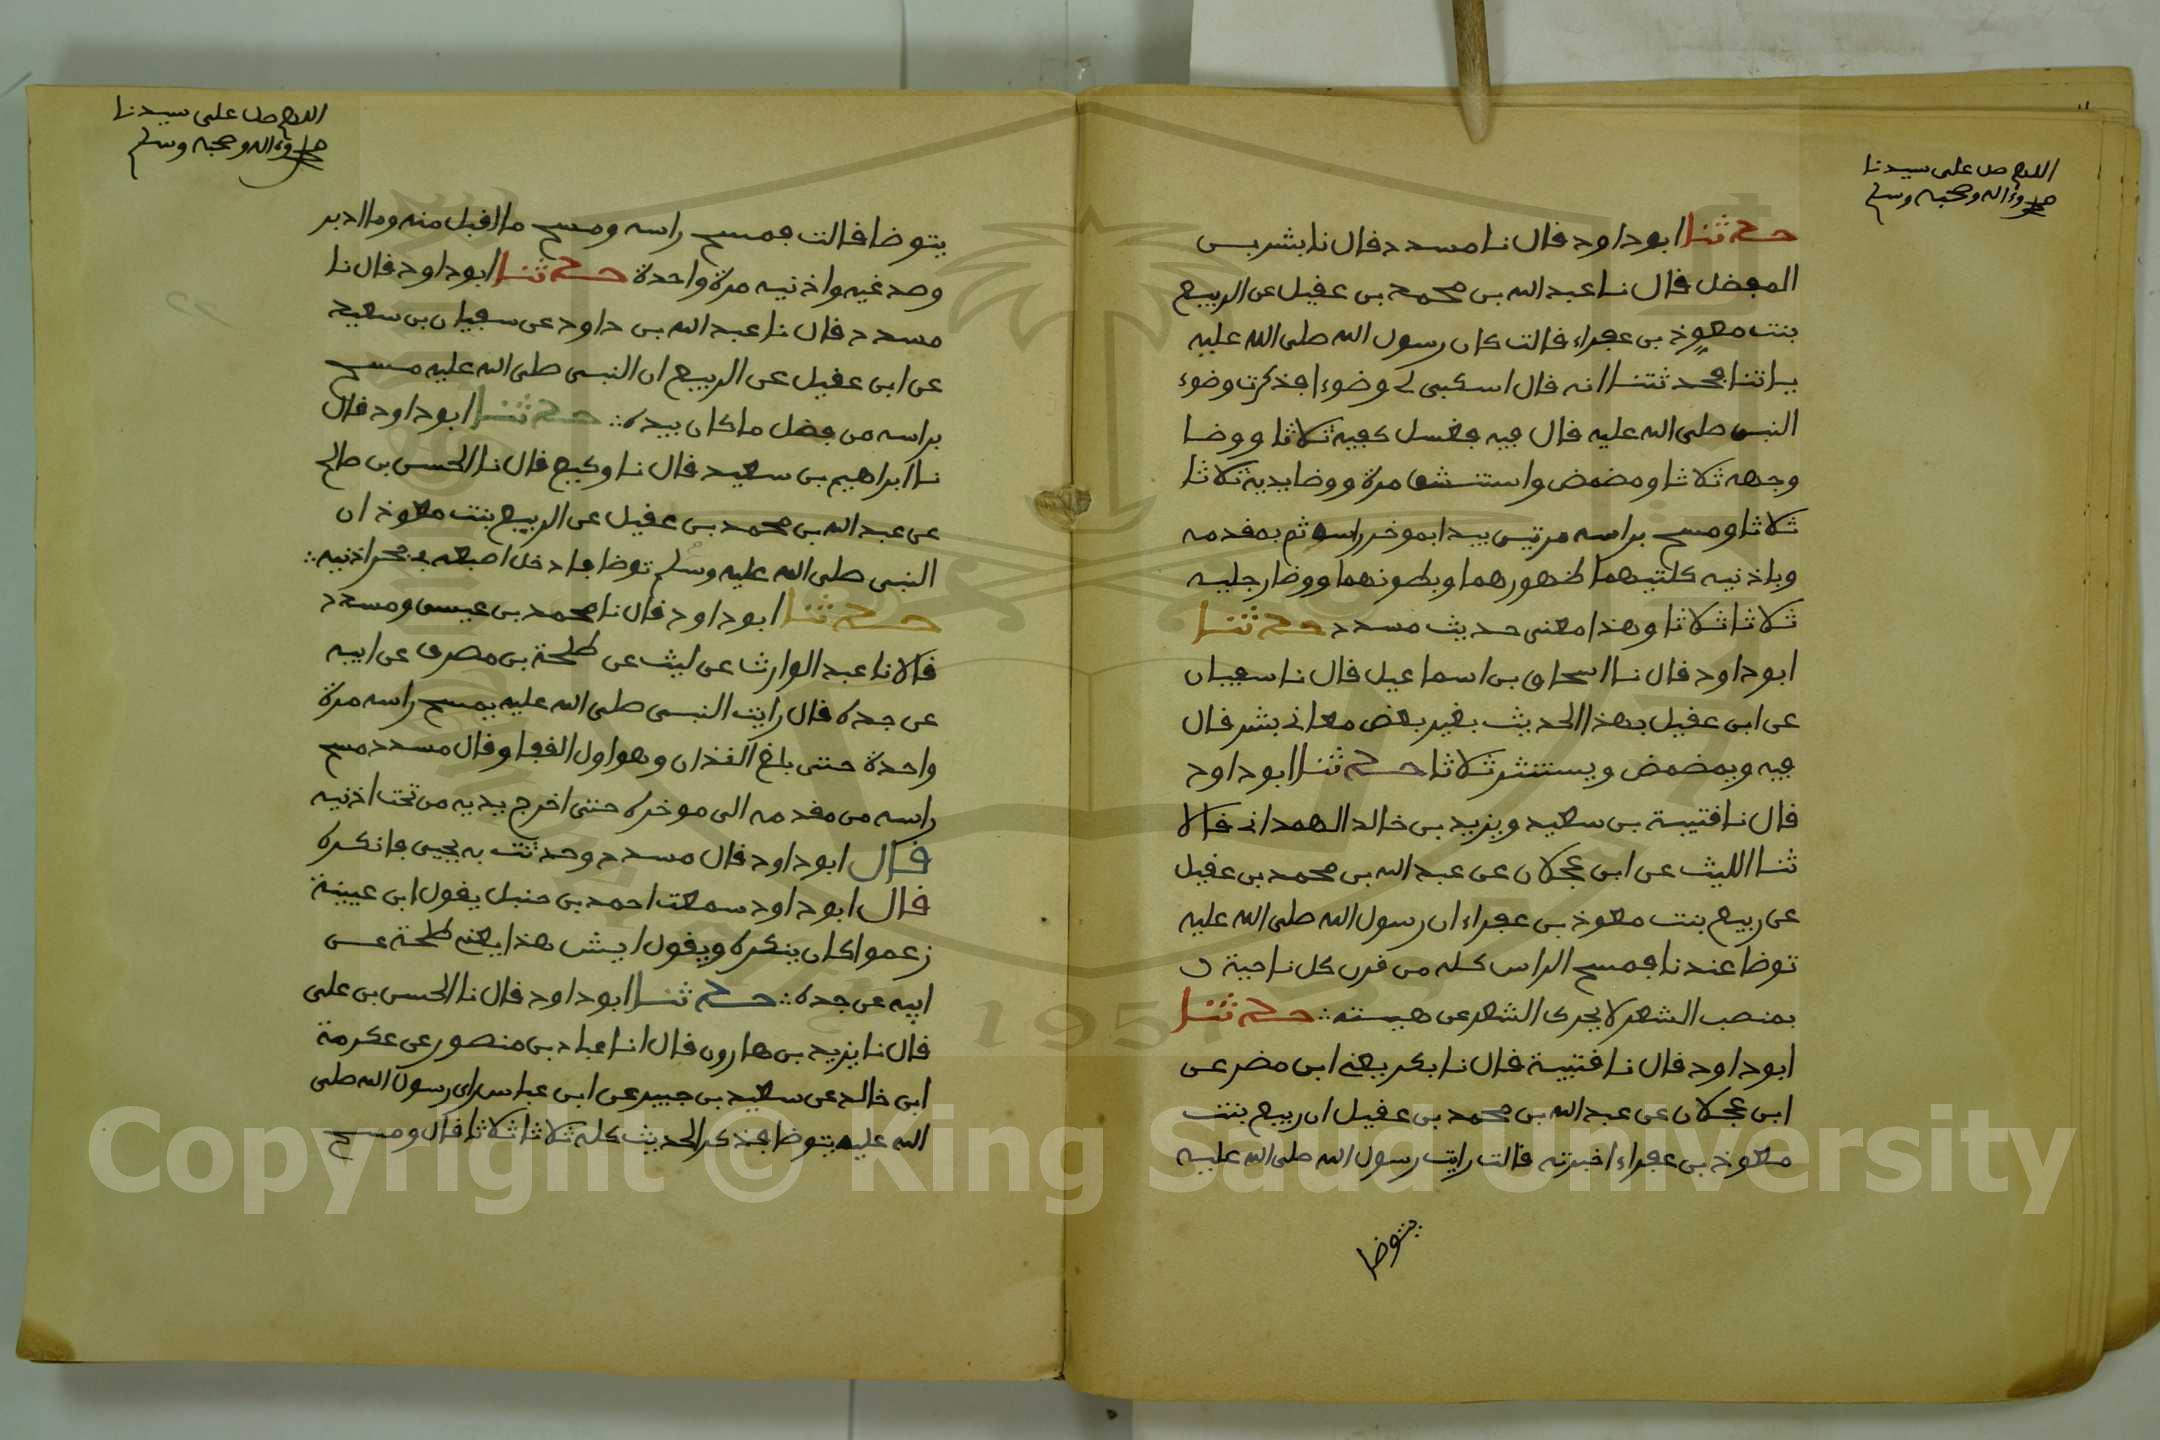 اللهم صل على سيدنا
محمد وءاله وصحبه وسلم
حدثنا ابو داود قال نا مسدد قال نا بشر بن
المفضل قال نا عبد الله بن محمد بن عقيل عن الربيع
بنت معوذ بن عفراء قالت كان رسول الله صلى الله عليه
ياتنا فحدثتنا انه قال اسكبى لى وضوءا فذكرت وضوء
النبى صلى الله عليه قال فيه فغسل كفيه ثلاثا ووضا
وجهه ثلاثا ومضمض واستنشق مرة ووضا يديه ثلاثا
ثلاثا ومسح براسه مرتين يبدا بموخر راسه ثم بمقدمه
وباذنيه كلتيهما ظهورهما وبطونهما ووضا رجليه
ثلاثا ثلاثا وهذا معنى حديث مسدد حدثنا
ابو داود قال نا اسحاق بن اسماعيل قال نا سفيان
عن ابن عقيل بهذا الحديث بغير بعض معانى بشر قال
فيه ويمضمض ويستنثر ثلاثا حدثنا ابو داود
قال نا قتيبة بن سعيد ويزيد بن خالد الهمدانى قالا
ثنا الليث عن ابن عجلان عن عبد الله بن محمد بن عقيل
عن ربيع بنت معوذ بن عفراء ان رسول الله صلى الله عليه
توضا عندنا فمسح الراس كله من قرن كل ناحية
بمنصب الشعر لا يحرك الشعر عن هيئته حدثنا
ابو داود قال نا قتيبة قال نا بكر يعنى ابن مضر عن
ابن عجلان عن عبد الله بن محمد بن عقيل ان ربيع بنت
معوذ بن عفراء اخبرته قالت رايت رسول الله صلى الله عليه
يتوضا
اللهم صل على سيدنا
محمد وءاله وصحبه وسلم
يتوضا قالت فمسح راسه ومسح ما اقبل منه وما ادبر
وصدغيه واذنيه مرة واحدة حدثنا ابو داود قال نا
مسدد قال نا عبد الله بن داود عن سفيان بن سعيد
عن ابن عقيل عن الربيع ان النبى صلى الله عليه مسح
براسه من فضل ما كان بيده حدثنا ابو داود قال
نا ابراهيم بن سعيد قال نا وكيع قال نا الحسن بن صالح
عن عبد الله بن محمد بن عقيل عن الربيع بنت معوذ ان
النبى صلى الله عليه وسلم توضا فادخل اصبعه فى جحر اذنيه
حدثنا ابو داود قال نا محمد بن عيسى ومسدد
قالا نا عبد الوارث عن ليث عن طلحة بن مصرف عن ابيه
عن جده قال رايت النبى صلى الله عليه يمسح راسه مرة
واحدة حتى بلغ القذال وهو اول القفا وقال مسدد مسح
راسه من مقدمه الى موخره حتى اخرج يديه من تحت اذنيه
قال ابو داود قال مسدد وحدثت به يحيى فانكره
قال ابو داود سمعت احمد بن حنبل يقول ابن عيينة
زعموا كان ينكره ويقول ايش هذا يعنى طلحة عن
ابيه عن جده حدثنا ابو داود قال نا الحسن بن على
قال نا يزيد بن هارون قال انا عباد بن منصور عن عكرمة
ابن خالد عن سعيد بن جبير عن ابن عباس راى رسول الله صلى
الله عليه يتوضا فذكر الحديث كله ثلاثا ثلاثا قال ومسح
1957
Copyright © King Saud University